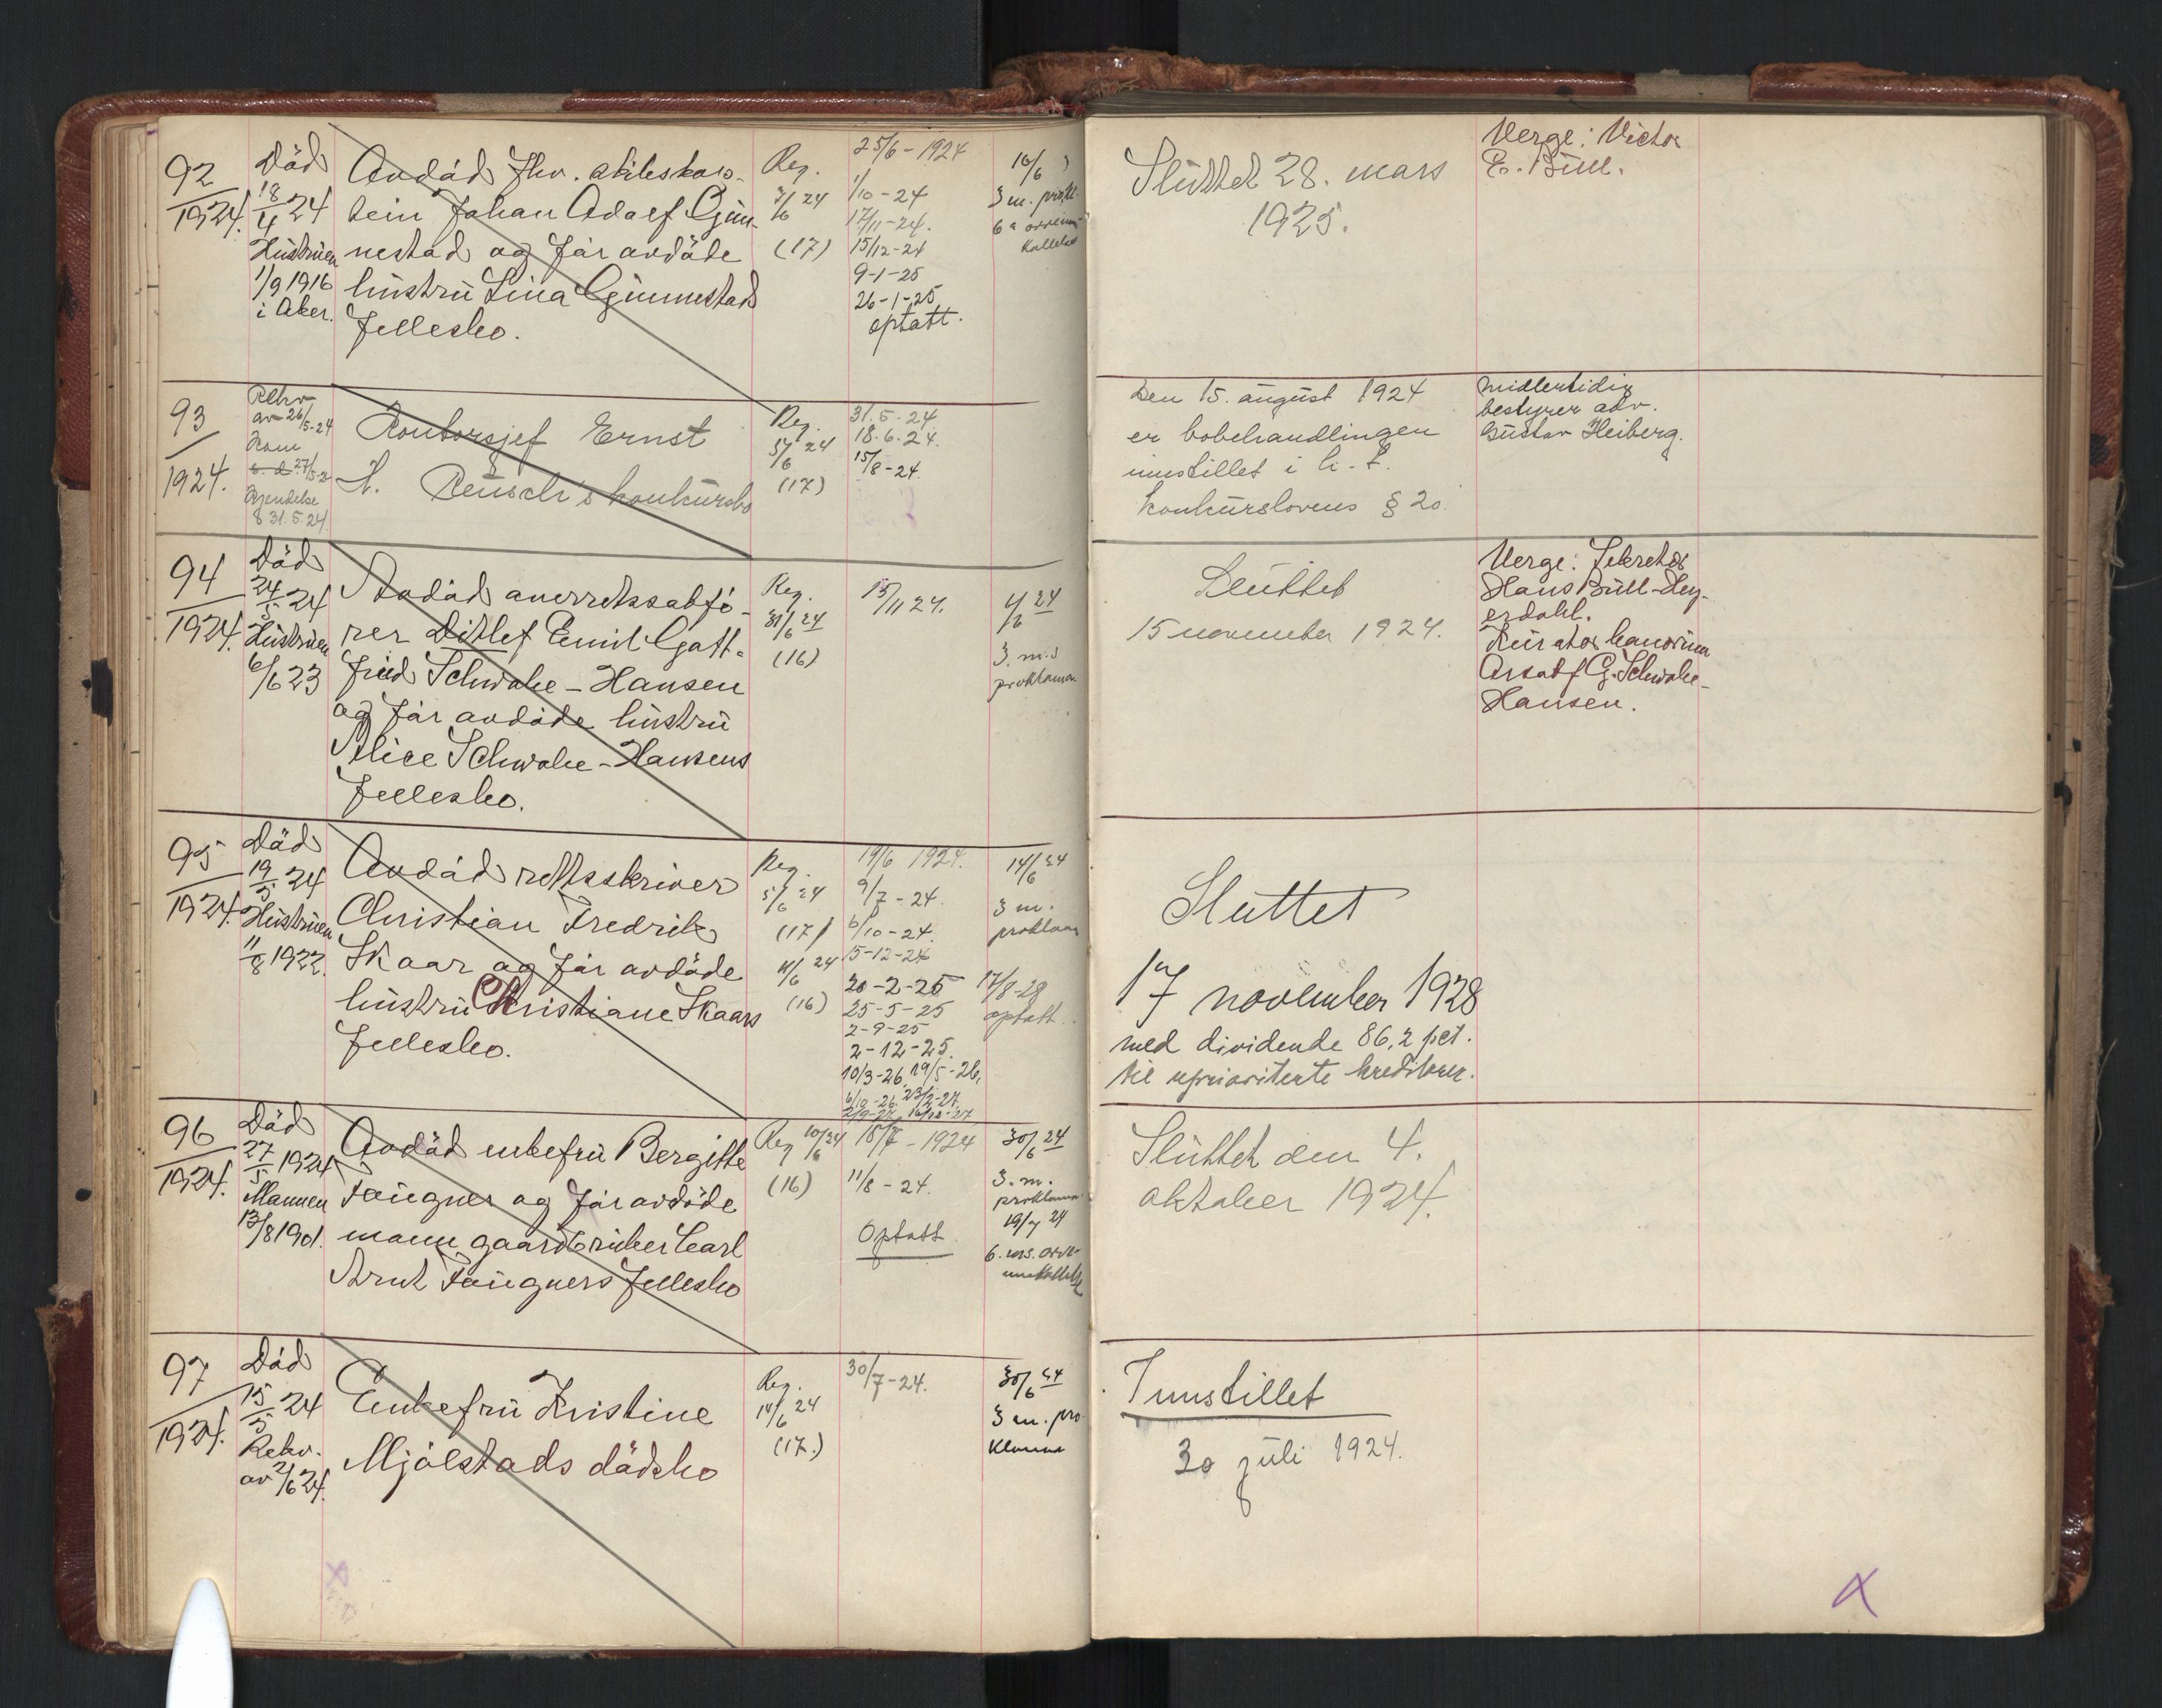 92
1924.
Död
18/4 24
Hustruen
1/9 1916
i Aker.
Avdød fhv.
tein Johan Adolf Gun-
nestad og før avdøde
hustru Lina Gunnestads
fellesbo.
Reg.
3/6 24
(17)
25/6 - 1924
1/10 - 24
17/11 - 24.
15/12 - 24
9-1-25
26-1-25
optatt.
3 m. prokl.
Sluttet 28. mars
1925.
Verge: Victor
E. Bull.
93
1924.
Rekv
av 26/5-24
Kom
27/5-24
Kjendelse
31.5.24
Kontorsjef Ernst
Reusch's konkursbo
Reg.
5/6 24
(17)
31.5.24.
18.6.24.
15/8-24.
Den 15. august 1924
er bobehandlingen
innstillet i h. t.
konkurslovens § 20.
Midlertidig
bestyrer adv.
Gustav Heiberg.
94
1924.
Död
24/5 24
Hustruen
6/6 23
Avdød overrettssakfø-
rer Ditlef Emil Gott-
fried Schwabe-Hansen
og før avdøde hustru
Alice Schwabe-Hansens
fellesbo.
Reg.
(16)
15/11 24.
4/6 24
3. m.s
proklama
Sluttet
15 november 1924.
Verge: Sekretær
Hans Bull-Hey-
erdahl.
Kurator
G. Schwabe-
Hansen.
95
1924.
Död
19/5 24
Hustruen
11/8 1922.
Avdød rettsskriver
Christian Fredrik
Skaar og før avdøde
hustru Christiane Skaars
fellesbo.
Reg.
5/6 24
(17)
11/6 24
(16)
19/6 1924.
9/7 - 24.
6/10 - 24.
15-12-24
20-2-25
25-5-25
2-9-25
2-12-25.
10/3-26, 19/5-26,
6/10-26. 23/2-27.
14/6 24
3 m.
proklama
17/8-28
optatt.
Sluttet
17 november 1928
med dividende 86,2 pct.
til uprioriterte kreditorer.
96
1924.
Död
27/5 1924
Mannen
13/8 1901.
Avdød enkefru Bergitte
Faugner og før avdøde
mann gaardbruker Carl
Arnt Faugners fellesbo
Reg 10/6 24
(16)
18/7 - 1924
11/8 - 24.
Optatt.
30/6 24
3. m.
proklama
19/7 24
Sluttet den 4.
oktober 1924.
97
1924.
Död
15/5 24
Rekv.
av 2/6 24.
Enkefru Kristine
Mjølstads dødsbo
Reg.
14/6 24
(17.)
30/7-24.
30/6 24
3 m. pro
klama
Innstillet
30 juli 1924.